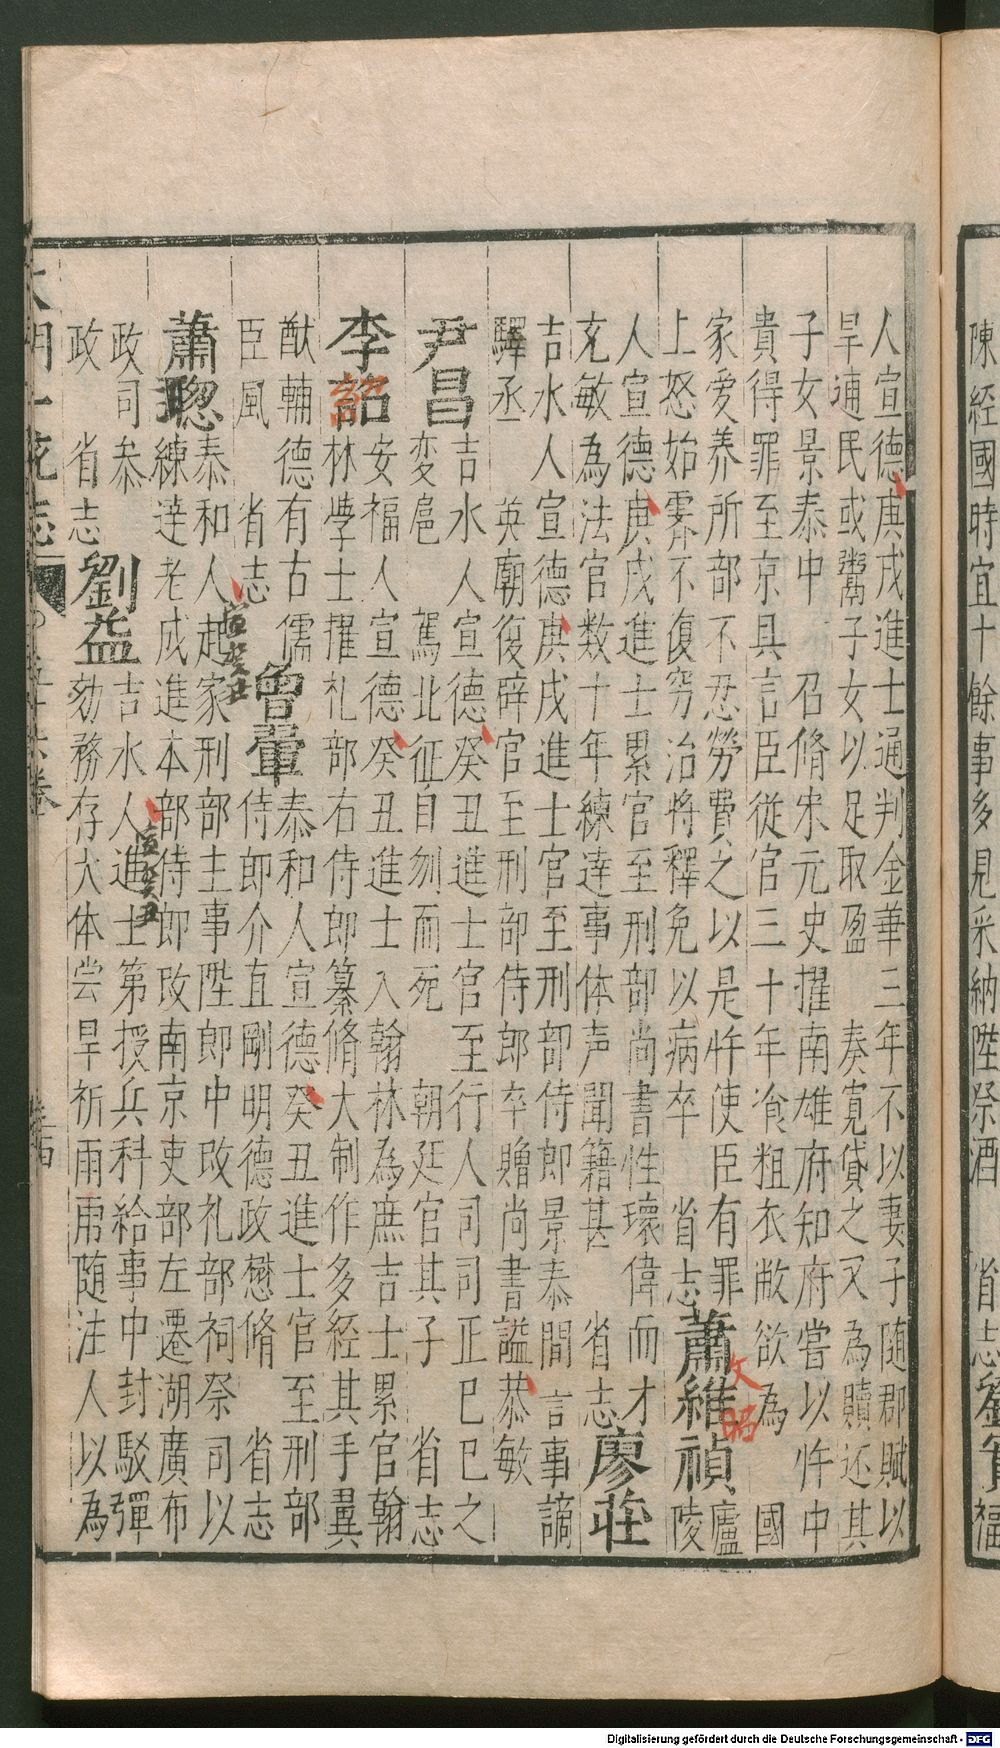 人宣德庚戌進士通判金華三年不以妻子随郡賦以
旱逋民或鬻子女以足取盈　奏寛貸之又為贖还其
子女景泰中　召脩宋元史擢南雄府知府嘗以忤中
貴得罪至京具言臣從官三十年飡粗衣敝欲為　國
家愛养所部不忍勞費之以是忤使臣有罪
上怒始霁不復穷治將釋免以病卒　省志蕭維禎廬陵
文昭
人宣德庚戌進士累官至刑部尚書性瓌偉而才
充敏為法官数十年練達事体声聞籍甚　省志廖莊
吉水人宣德庚戌進士官至刑部侍郎景泰間　言事謫
驛丞　英廟復辟官至刑部侍郎卒贈尚書謚恭敏
尹昌吉水人宣德癸丑進士官至行人司司正巳巳之
变扈　駕北征自刎而死　朝廷官其子　省志
李詔安福人宣德癸丑進士入翰林為庶吉士累官翰
紹
林學士擢礼部右侍郎纂脩大制作多経其手異
猷輔德有古儒
臣風　省志曾翬泰和人宣德癸丑進士官至刑部
侍郎介直剛明德政懋脩　省志
宣癸丑
蕭璁泰和人起家刑部主事陞郎中改礼部祠祭司以
練達老成進本部侍郎改南京吏部左遷湖廣布
政司叅
政　省志劉益吉水人進士第授兵科給事中封駁彈
宣癸丑
劾務存大体尝旱祈雨雨随注人以為
大明一統志
陳経國時宜十餘事多見采納陞祭酒　省志劉實福
Digitalisierung gefördert durch die Deutsche Forschungsgemeinschaft - DFG